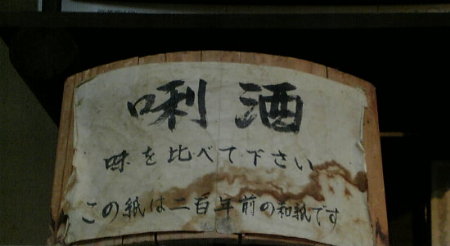 唎酒
味を比べて下さい
この紙は二百年前の和紙です